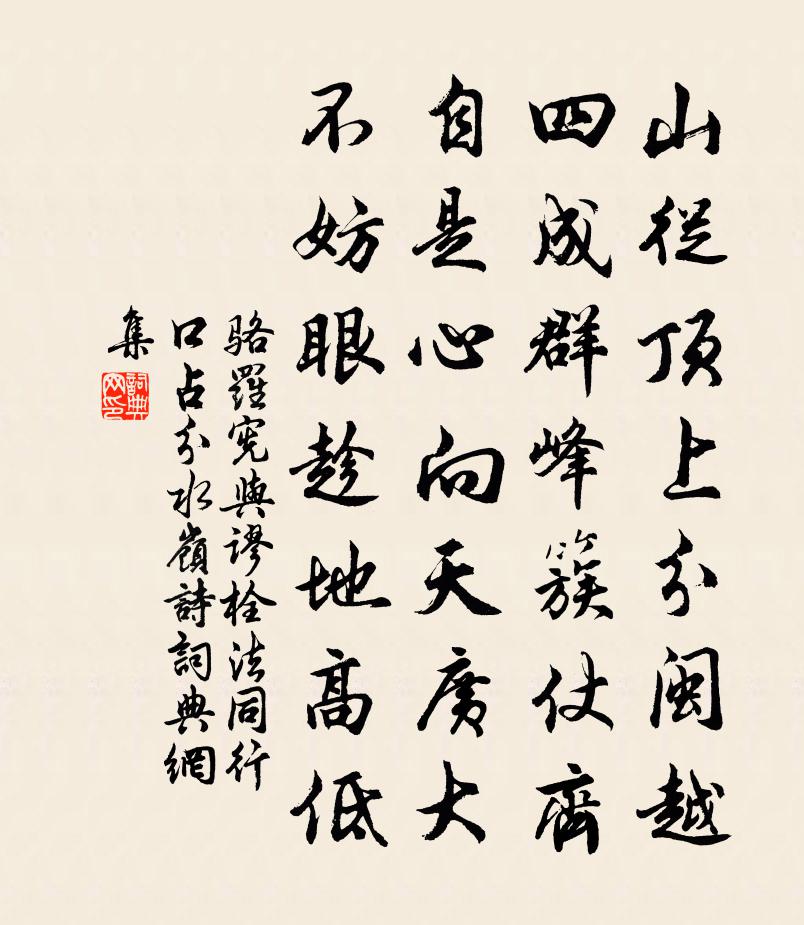 山從頂上分閩越
四成群峰簇仗齊
自是心向天廣大
不妨眼趁地高低
駱羅憲與謬栓法同行
口占分水嶺詩詞典網
集
詞典網印